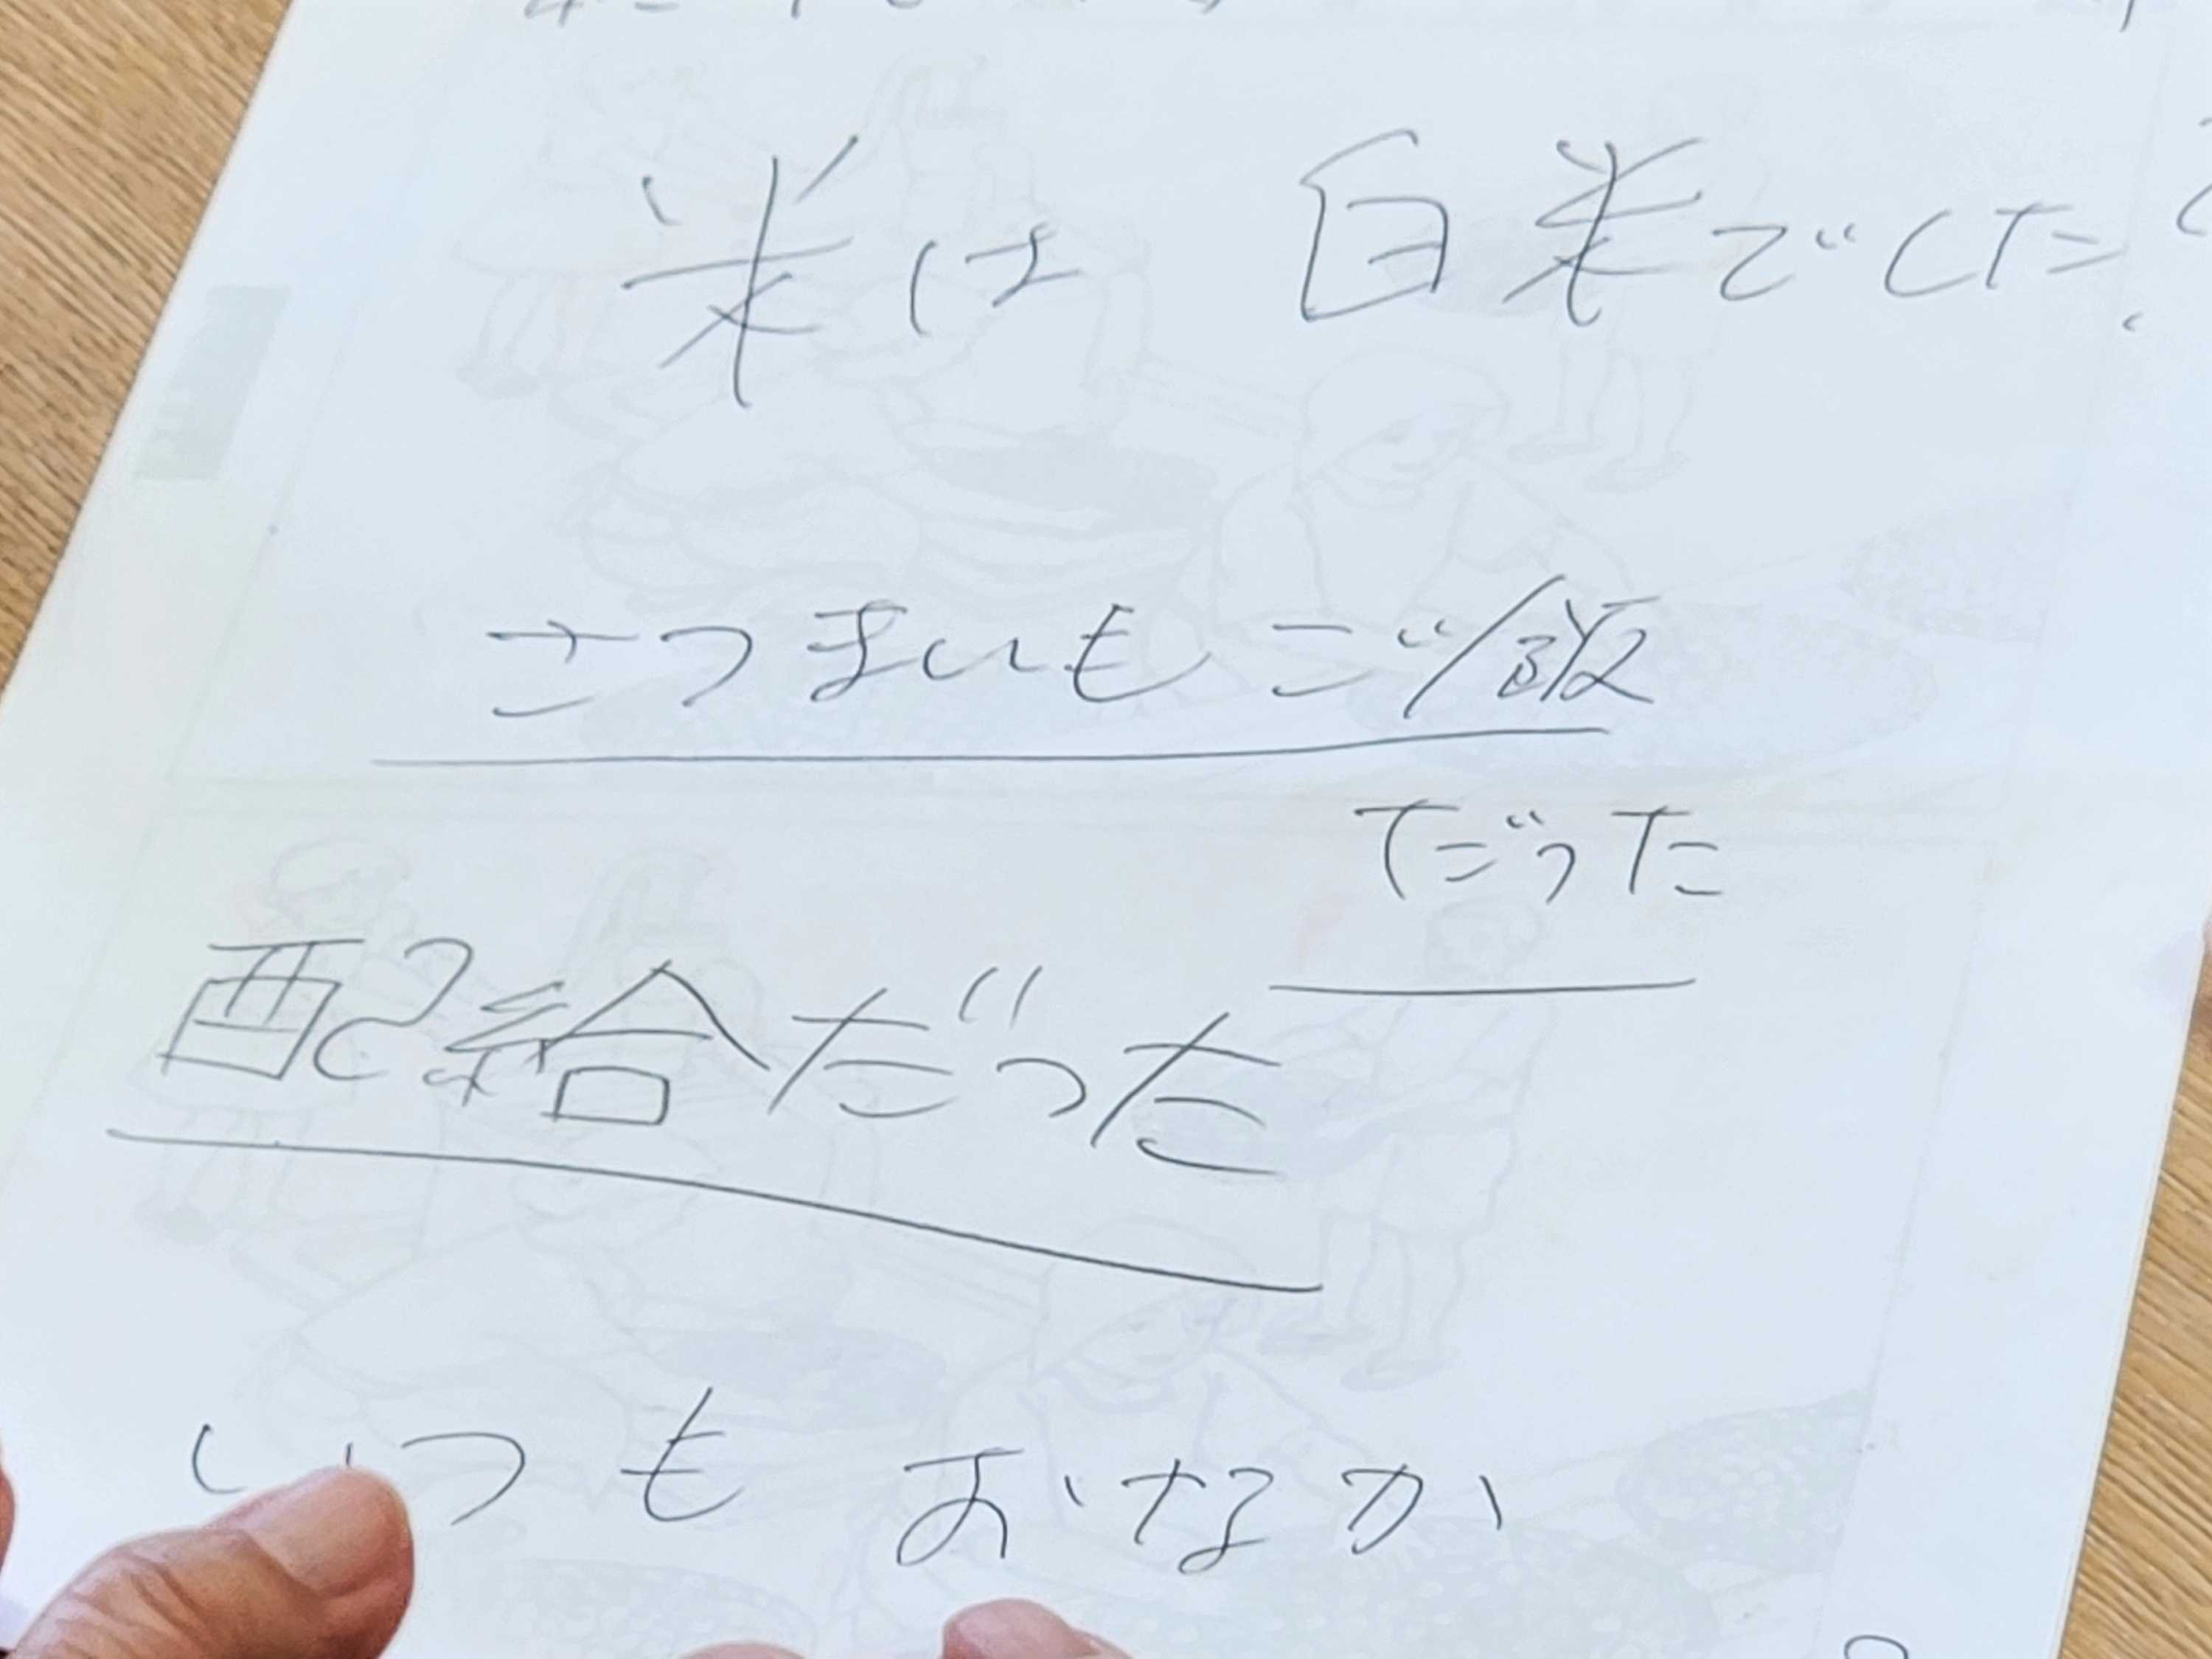 米は 白米でした。
さつまいもご飯
だった
配給だった
いつも おなか